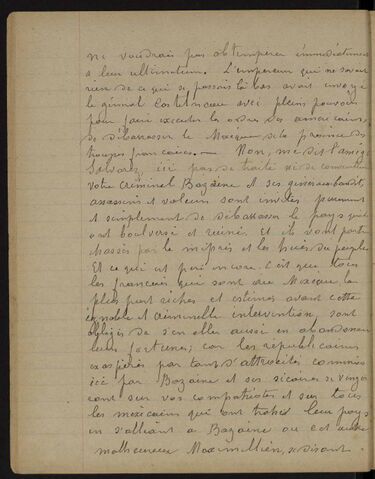 ne voudrais pas obtemperer immédiatement
a leur ultimatum. L'empereur qui ne savait
rien de ce qui se passait là bas avait envoyé
le général Castelneau avec pleins pouvoirs
pour faire executer les ordres des americains,
de débarasser le Mexique de la province des
troupes françaises. — Non, me dit l'ami
Selvarez, ici pas de traité ni de convention
votre criminel Bazaine et ses generaux bandits,
assassins et voleurs sont invités purement
et simplement de débarasser le pays qu'ils
ont boulversé et ruiné. Et ils vont partir
chassés par le mépris et les huées du peuple.
Et ce qui est pire encore c'est que tous
les français qui sont au Mexique la
plus part riches et estimés avant cette
ignoble et criminelle intervention, sont
obligés de s'en aller aussi en abandonnant
leurs fortunes; car les républicains
exaspérés par tant d'attrocités commises
ici par Bazaine et ses sicaires se vengeront
sur vos compatriotes et sur tous
les mexicains qui ont trahis leur pays
en s'alliant a Bazaine ou cet autre
malheureux Maximilien, se disant